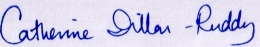 Catherine Dillon-Ruddy